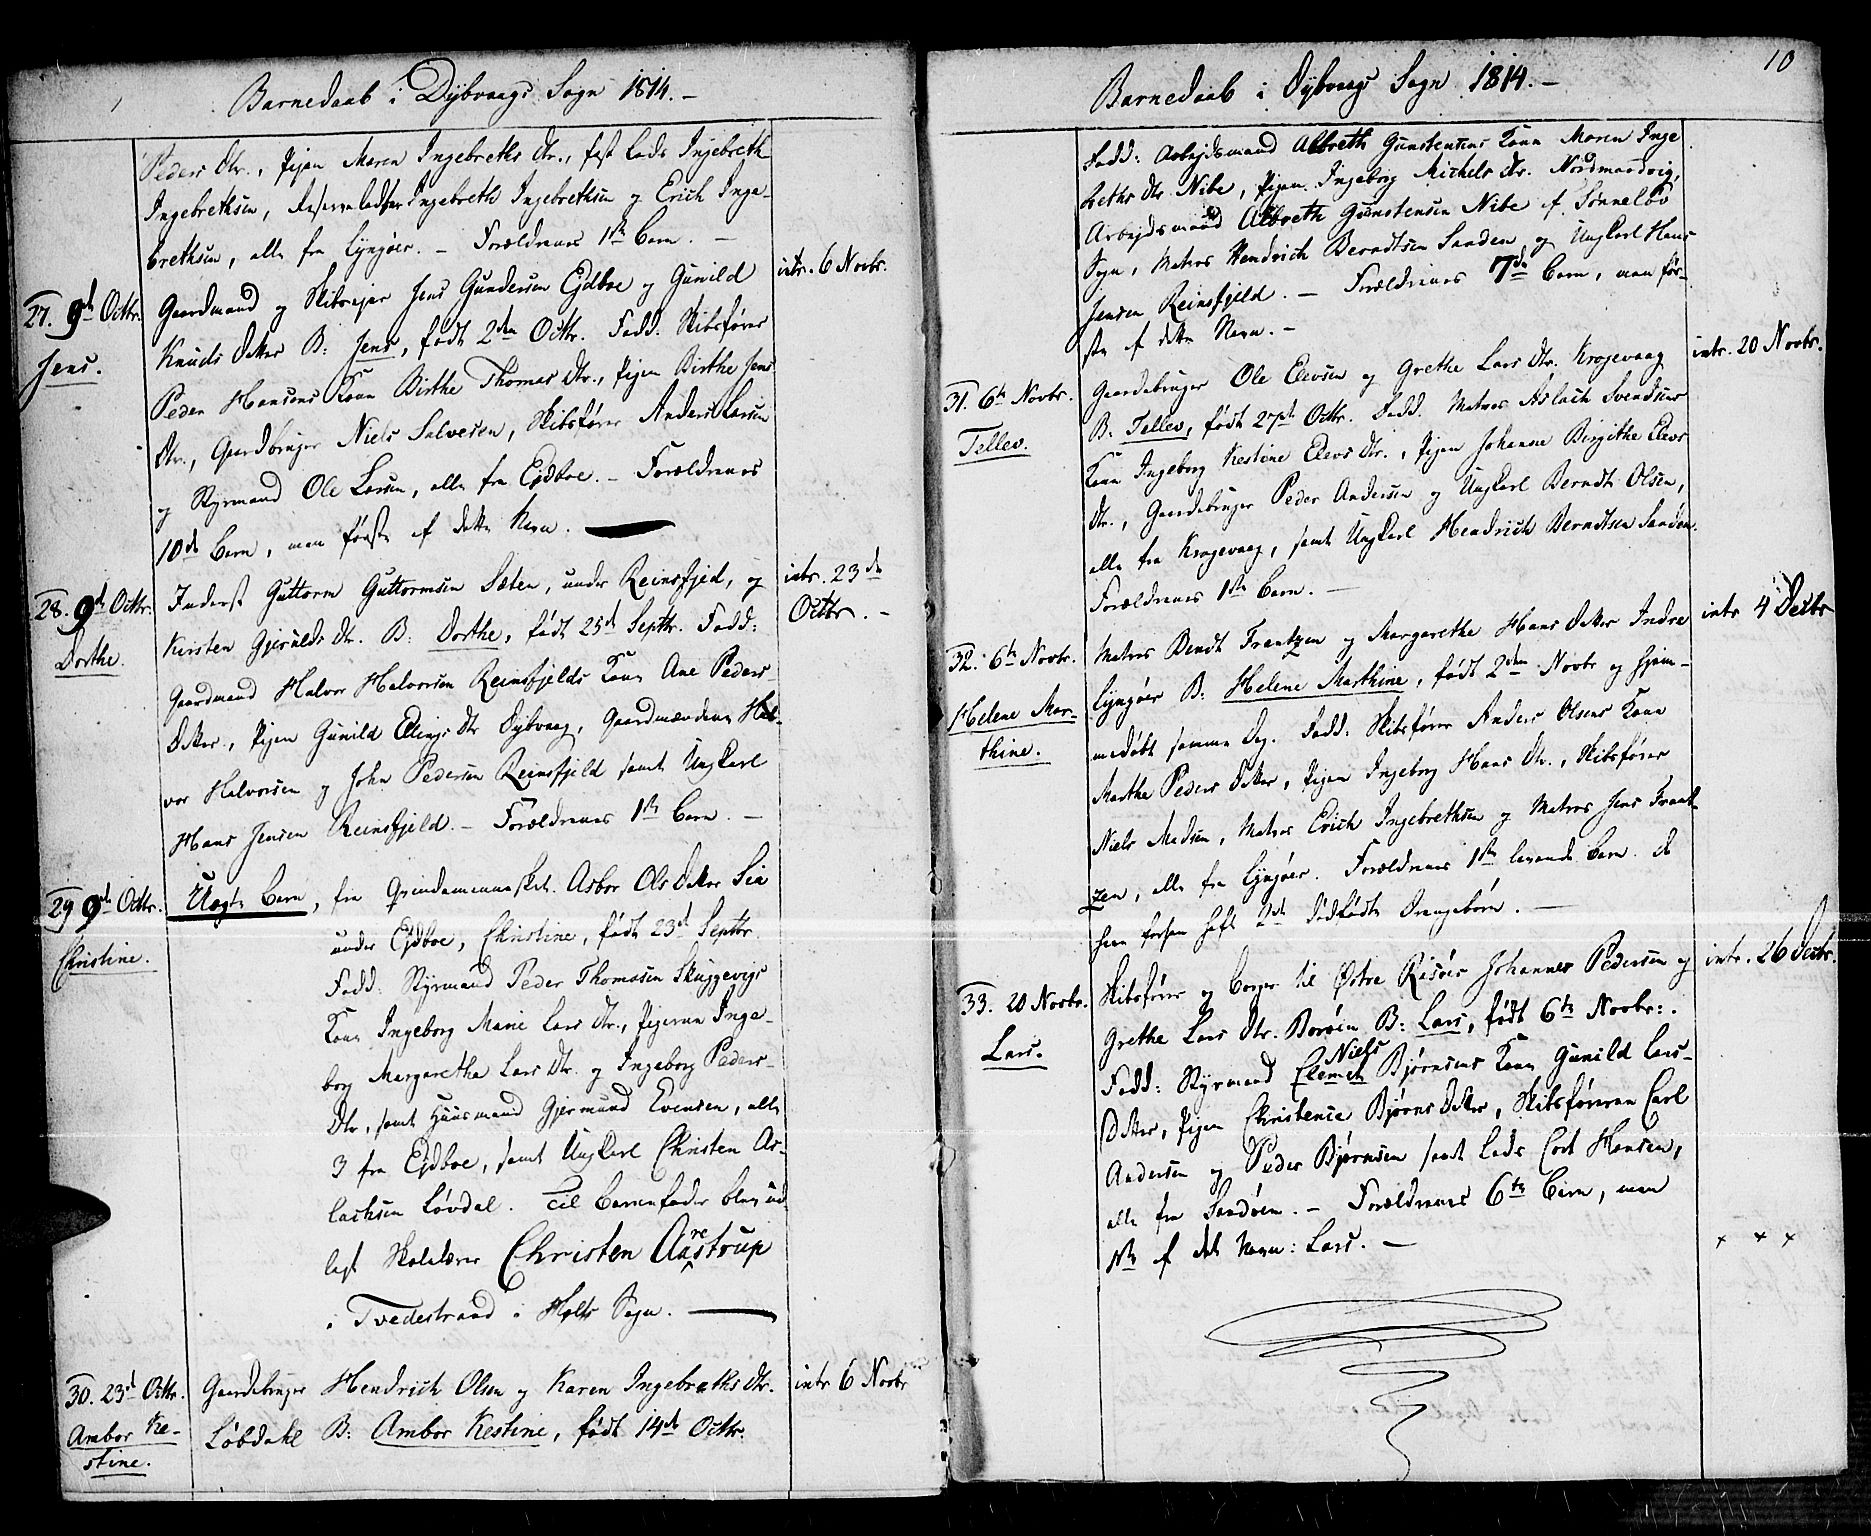 Barnedaab i Dybvaags Sogn 1814.-
Peders Dtr., Pigen Maren Ingebreths Dtr., Ingebreth
Ingebrethsen, Ingebreth Ingebrethsen og Erich Inge-
brethsen, alle fra Lyngøer. - Forældrenes 1ste Barn. -
27. 9de Octbr.
Jens.
Gaardmand og Skibsejer Jens Gundersen Ejdboe og Gunild
intr. 6 Novbr.
Knuds Datter B: Jens, født 2den Octbr. Fadd. Skibsfører
Peder Hansens Kone Birthe Thomas Dtr., Pigen Birthe Jens
Dtr., Gaardbruger Niels Salvesen, Skibsfører Anders Larsen
og Styrmand Ole Larsen, alle fra Ejdboe. - Forældrenes
10de Barn, men første af dette Navn.
28. 9de Octbr.
Dorthe.
Inderst Guttorm Guttormsen Sæten, under Reinsfjed, og
intr. 23de
Octbr. -
Kirsten Gjerulds Dtr. B: Dorthe, født 25de Septbr. Fadd:
Gaardmand Halvor Halvorsen Reinsfjelds Kone Ane Peders-
Datter, Pigen Gunild Ellings Dtr Dybvaag, Gaardmændene Hal-
vor Halvorsen og John Pedersen Reinsfjeld samt Ungkarl
Hans Jensen Reinsfjeld. - Forældrenes 1ste Barn. -
29 9de Octbr.
Christine.
Uægte Barn, fra Qvindemennesket Asbor Ols Datter Sie
under Ejdboe, Christine, født 23de Septbr.
Fadd: Styrmand Peder Thomasen Skuggevigs
Kone Ingeborg Marie Lars Dtr., Pigerne Inge-
borg Margarethe Lars Dtr. og Ingeborg Peders-
Dtr, samt Huusmand Gjermund Evensen, alle
3 fra Ejdboe, samt Ungkarl Christen As-
lachsen Løvdal. Til Barnefader blev ud
lagt Skolelærer Christen Aarestrup
i Tvedestrand i Holts Sogn.
30. 23de Octbr.
Ambor Ke-
stine.
Gaardebruger Hendrich Olsen og Karen Ingebreths Dtr.
intr 6 Novbr
Løbdahl B: Ambor Kestine, født 14de Octbr.
10
Barnedaab i Dybvaags Sogn 1814. -
Fadd: Arbejdsmand Albreth Gunstensens Kone Maren Inge
breths Dtr Nibe, Pigen Ingeborg Michels Dtr. Nordmandvig,
Arbejdsmand Albreth Gunstensen Nibe af Sønneløv
Sogn, Matros Hendrich Berndtsen Sanden og Ungkarl Hans
Jensen Reinsfjeld. - Forældrenes 7de Barn, men før-
ste af dette Navn. -
31. 6te Novbr.
Tellev.
Gaardebruger Ole Elevsen og Grethe Lars Dtr. Krogevaag
intr. 20 Novbr.
B. Tellev, født 27de Octbr. Fadd. Matros Aslach Svendsens
Kone Ingeborg Kestine Elevs Dtr., Pigen Johanne Birgithe Elevs
Dtr., Gaardebruger Peder Andersen og Ungkarl Berndt Olsen,
alle fra Krogevaag, samt Ungkarl Hendrich Berndtsen Sanden.
Forældrenes 1ste Barn. -
32. 6te Novbr.
Helene Mar-
thine.
Matros Bendt Frantzen og Margarethe Hans Datter Indre
intr 4 Decbr
Lyngøer B: Helene Marthine, født 2den Novbr og hjem-
medøbt samme Dag. Fadd: Skibsfører Anders Olsens Kone
Marthe Peders Datter, Pigen Ingeborg Hans Dtr., Skibsfører
Niels Madsen, Matros Erich Ingebrethsen og Matros Jens Frant-
zen, alle fra Lyngøer. Forældrenes 1ste levende Barn. De
have forhen haft 2de dødfødte Drengebørn. -
33. 20 Novbr.
Lars.
Skibsfører og Borger til Østre Risøer Johannes Pedersen og
intr. 26 Decbr.
Grethe Lars Dtr. Borøen B: Lars, født 6te Novbr:.
Fadd: Styrmand Clemet Niels Bjørnsens Kone Gunild Lars-
Datter, Pigen Christence Bjørns Datter, Skibsførerne Carl
Andersen og Peder Bjørnsen samt Lods Cort Hansen,
alle fra Sandøen. - Forældrenes 6te Barn, men
1ste af det Navn: Lars. -
x x x